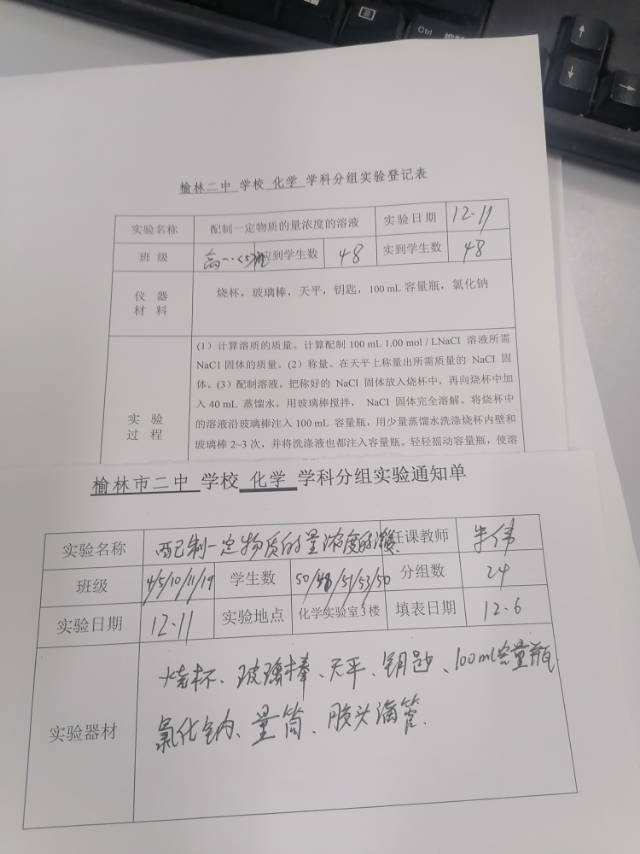 Ctrl
榆林二中 学校 化学 学科分组实验登记表
实验名称 配制一定物质的量浓度的溶液 实验日期 12·11
班级 高一·<5>班 应到学生数 48 实到学生数 48
仪器材料 烧杯，玻璃棒，天平，钥匙，100 mL 容量瓶，氯化钠
实验过程
(1) 计算溶质的质量。计算配制 100 mL 1.00 mol / LNaCl 溶液所需
NaCl 固体的质量。(2) 称量。在天平上称量出所需质量的 NaCl 固
体。(3) 配制溶液。把称好的 NaCl 固体放入烧杯中，再向烧杯中加
入 40 mL 蒸馏水，用玻璃棒搅拌， NaCl 固体完全溶解。将烧杯中
的溶液沿玻璃棒注入 100 mL 容量瓶，用少量蒸馏水洗涤烧杯内壁和
玻璃棒 2~3 次，并将洗涤液也都注入容量瓶。轻轻摇动容量瓶，使溶
榆林市二中 学校 化学 学科分组实验通知单
实验名称 配制一定物质的量浓度的溶液 任课教师
班级 4/5/10/11/19 学生数 50/48/51/53/50 分组数 24
实验日期 12·11 实验地点 化学实验室3楼 填表日期 12·6
实验器材
烧杯、玻璃棒、天平、钥匙、100ml容量瓶
氯化钠、量筒、胶头滴管.